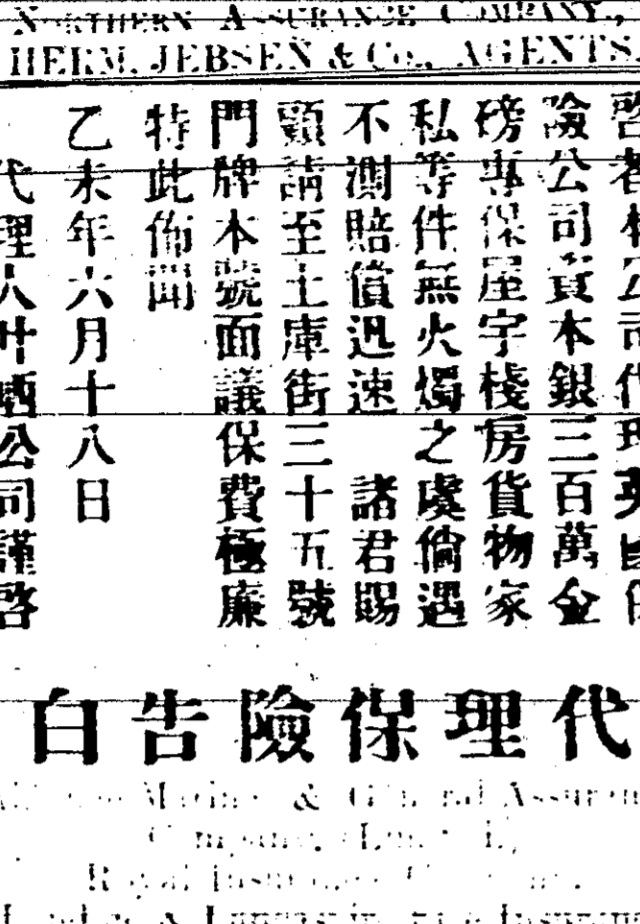 NORTHERN ASSURANCE COMPANY.,
HERM. JEBSEN & Co., AGENTS
啓者本公司代理英國保
險公司資本銀三百萬金
磅專保屋宇棧房貨物家
私等件無火燭之虞倘遇
不測賠償迅速 諸君賜
顧請至土庫街三十五號
門牌本號面議保費極廉
特此佈聞
乙未年六月十八日
代理人廿晒公司謹啓
代理保險告白
Marine & General Assuran
Company,
Royal Insurance
& Lancashire Fire Insuran